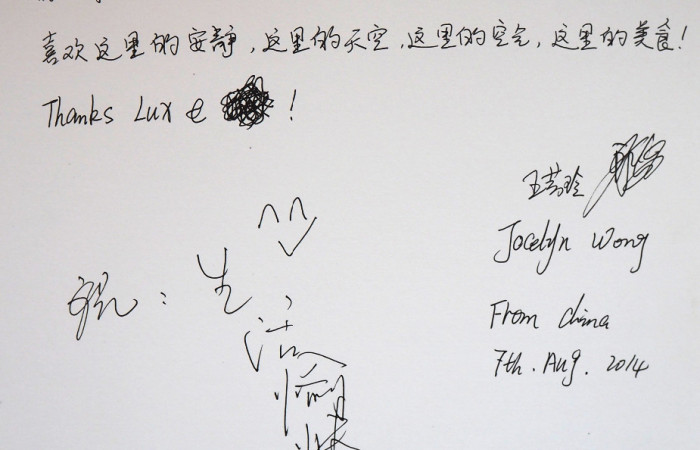 喜欢这里的安静,这里的天空,这里的空气,这里的美食!
Thanks Lux e !
王芳玲
Jocelyn Wong
From China
7th. Aug. 2014
祝:生
活
愉
快